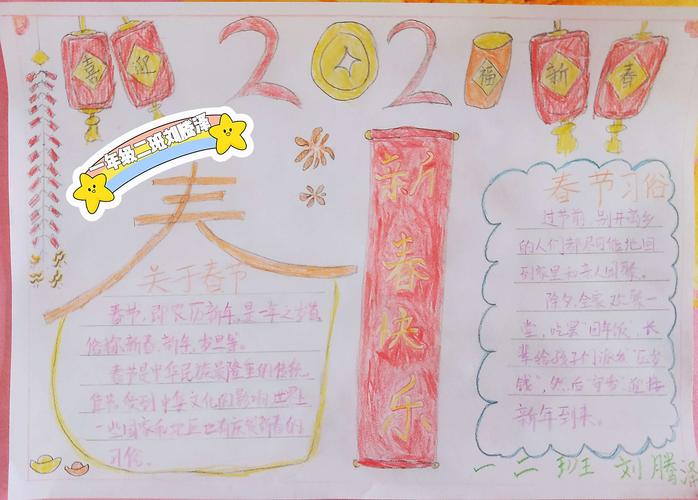 喜 迎 2020 福 新 春
一年级二班刘腾泽
春
关于春节
春节,即农历新年,是一年之岁首
俗称新春、新年、岁旦等。
春节是中华民族最隆重的传统
佳节,受到中华文化的影响,世界上
一些国家和地区也有庆贺新春的
习俗。
新春快乐
春节习俗
过节前,别井离乡
的人们都尽可能地回
到家里和亲人团聚。
除夕,全家欢聚一
堂,吃罢"团年饭",长
辈给孩子们派发"压岁
钱",然后"守岁"迎接
新年到来。
一二班 刘腾泽